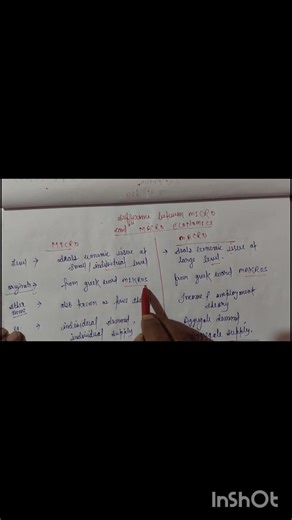 difference between MICRO
and MACRO ECONOMICS
MICRO
MACRO
Level → deals economic issue at small / individual level
→ deals economic issue at large level.
originate → from greek word MIKROS
from greek word MAKROS
other name → also known as price
Income & employment theory
→ individual demand, individual supply
Aggregate demand, supply.
InShOt